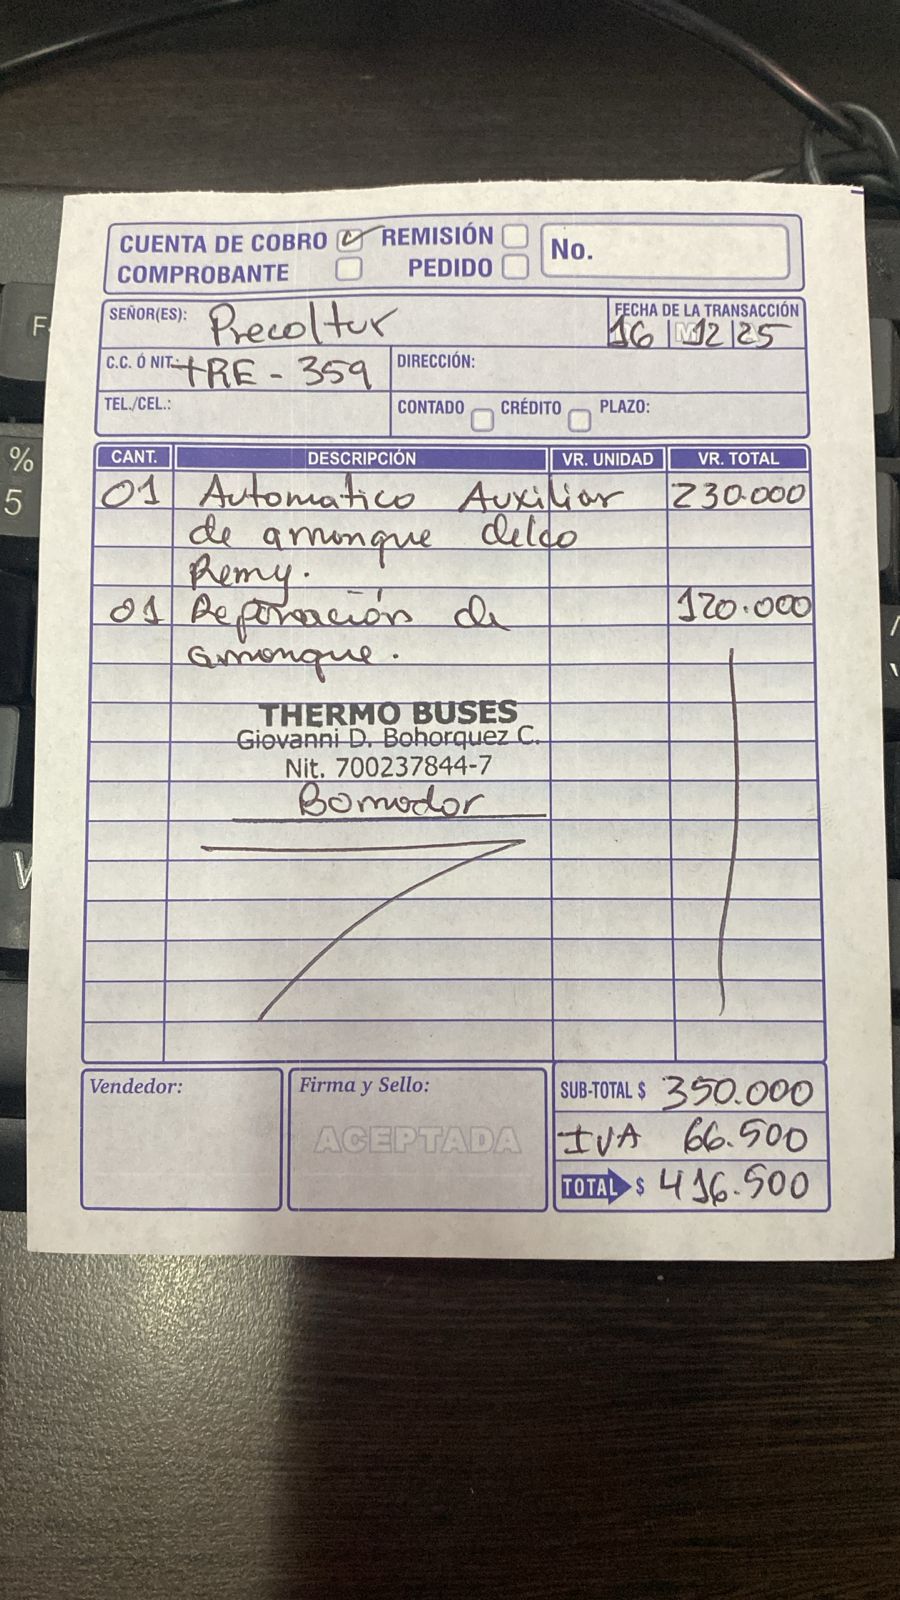 CUENTA DE COBRO ✓ REMISIÓN No.
COMPROBANTE PEDIDO
SEÑOR(ES): Precoltur FECHA DE LA TRANSACCIÓN
16 | M12 | 25
C.C. Ó NIT.: TRE - 359 DIRECCIÓN:
TEL./CEL.: CONTADO CRÉDITO PLAZO:
CANT. DESCRIPCIÓN VR. UNIDAD VR. TOTAL
01 Automatico Auxiliar 230.000
de arranque delco
Remy.
01 Reparación de 120.000
arranque.
THERMO BUSES
Giovanni D. Bohorquez C.
Nit. 700237844-7
Vendedor: Firma y Sello: SUB-TOTAL $ 350.000
ACEPTADA IVA 66.500
TOTAL $ 416.500
F
%
5